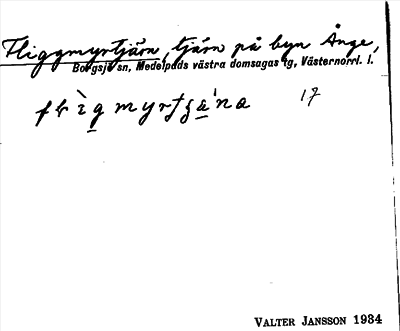 Fliggmyrtjärn, tjärn på byn Ånge,
Borgsjö sn, Medelpads västra domsagas tg, Västernorrl. l.
17
VALTER JANSSON 1934